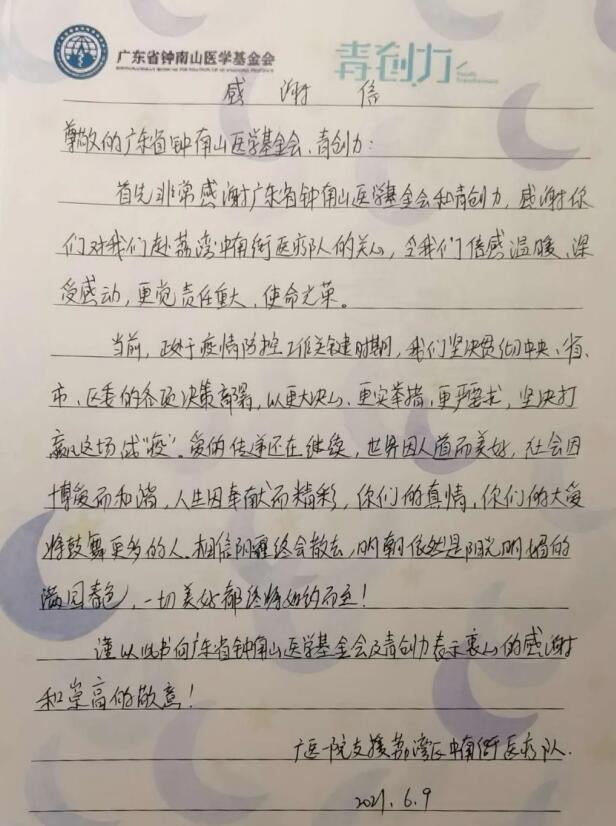 广东省钟南山医学基金会
青创力
感谢信
尊敬的广东省钟南山医学基金会、青创力:
首先非常感谢广东省钟南山医学基金会和青创力,感谢你
们对我们赴荔湾中南街医疗队的关心,令我们倍感温暖、深
受感动,更觉责任重大、使命光荣。
当前,正处于疫情防控工作关键时期,我们坚决贯彻中央、省、
市、区委的各项决策部署,以更大决心、更实举措、更严要求,坚决打
赢这场战“疫”。爱的传递还在继续,世界因人道而美好,社会因
博爱而和谐,人生因奉献而精彩,你们的真情,你们的大爱
将鼓舞更多的人。相信阴霾终会散去,明朝依然是阳光明媚的
满园春色,一切美好都终将如约而至!
谨以此书向广东省钟南山医学基金会及青创力表示衷心的感谢
和崇高的敬意!
广医一院支援荔湾区中南街医疗队.
2021.6.9